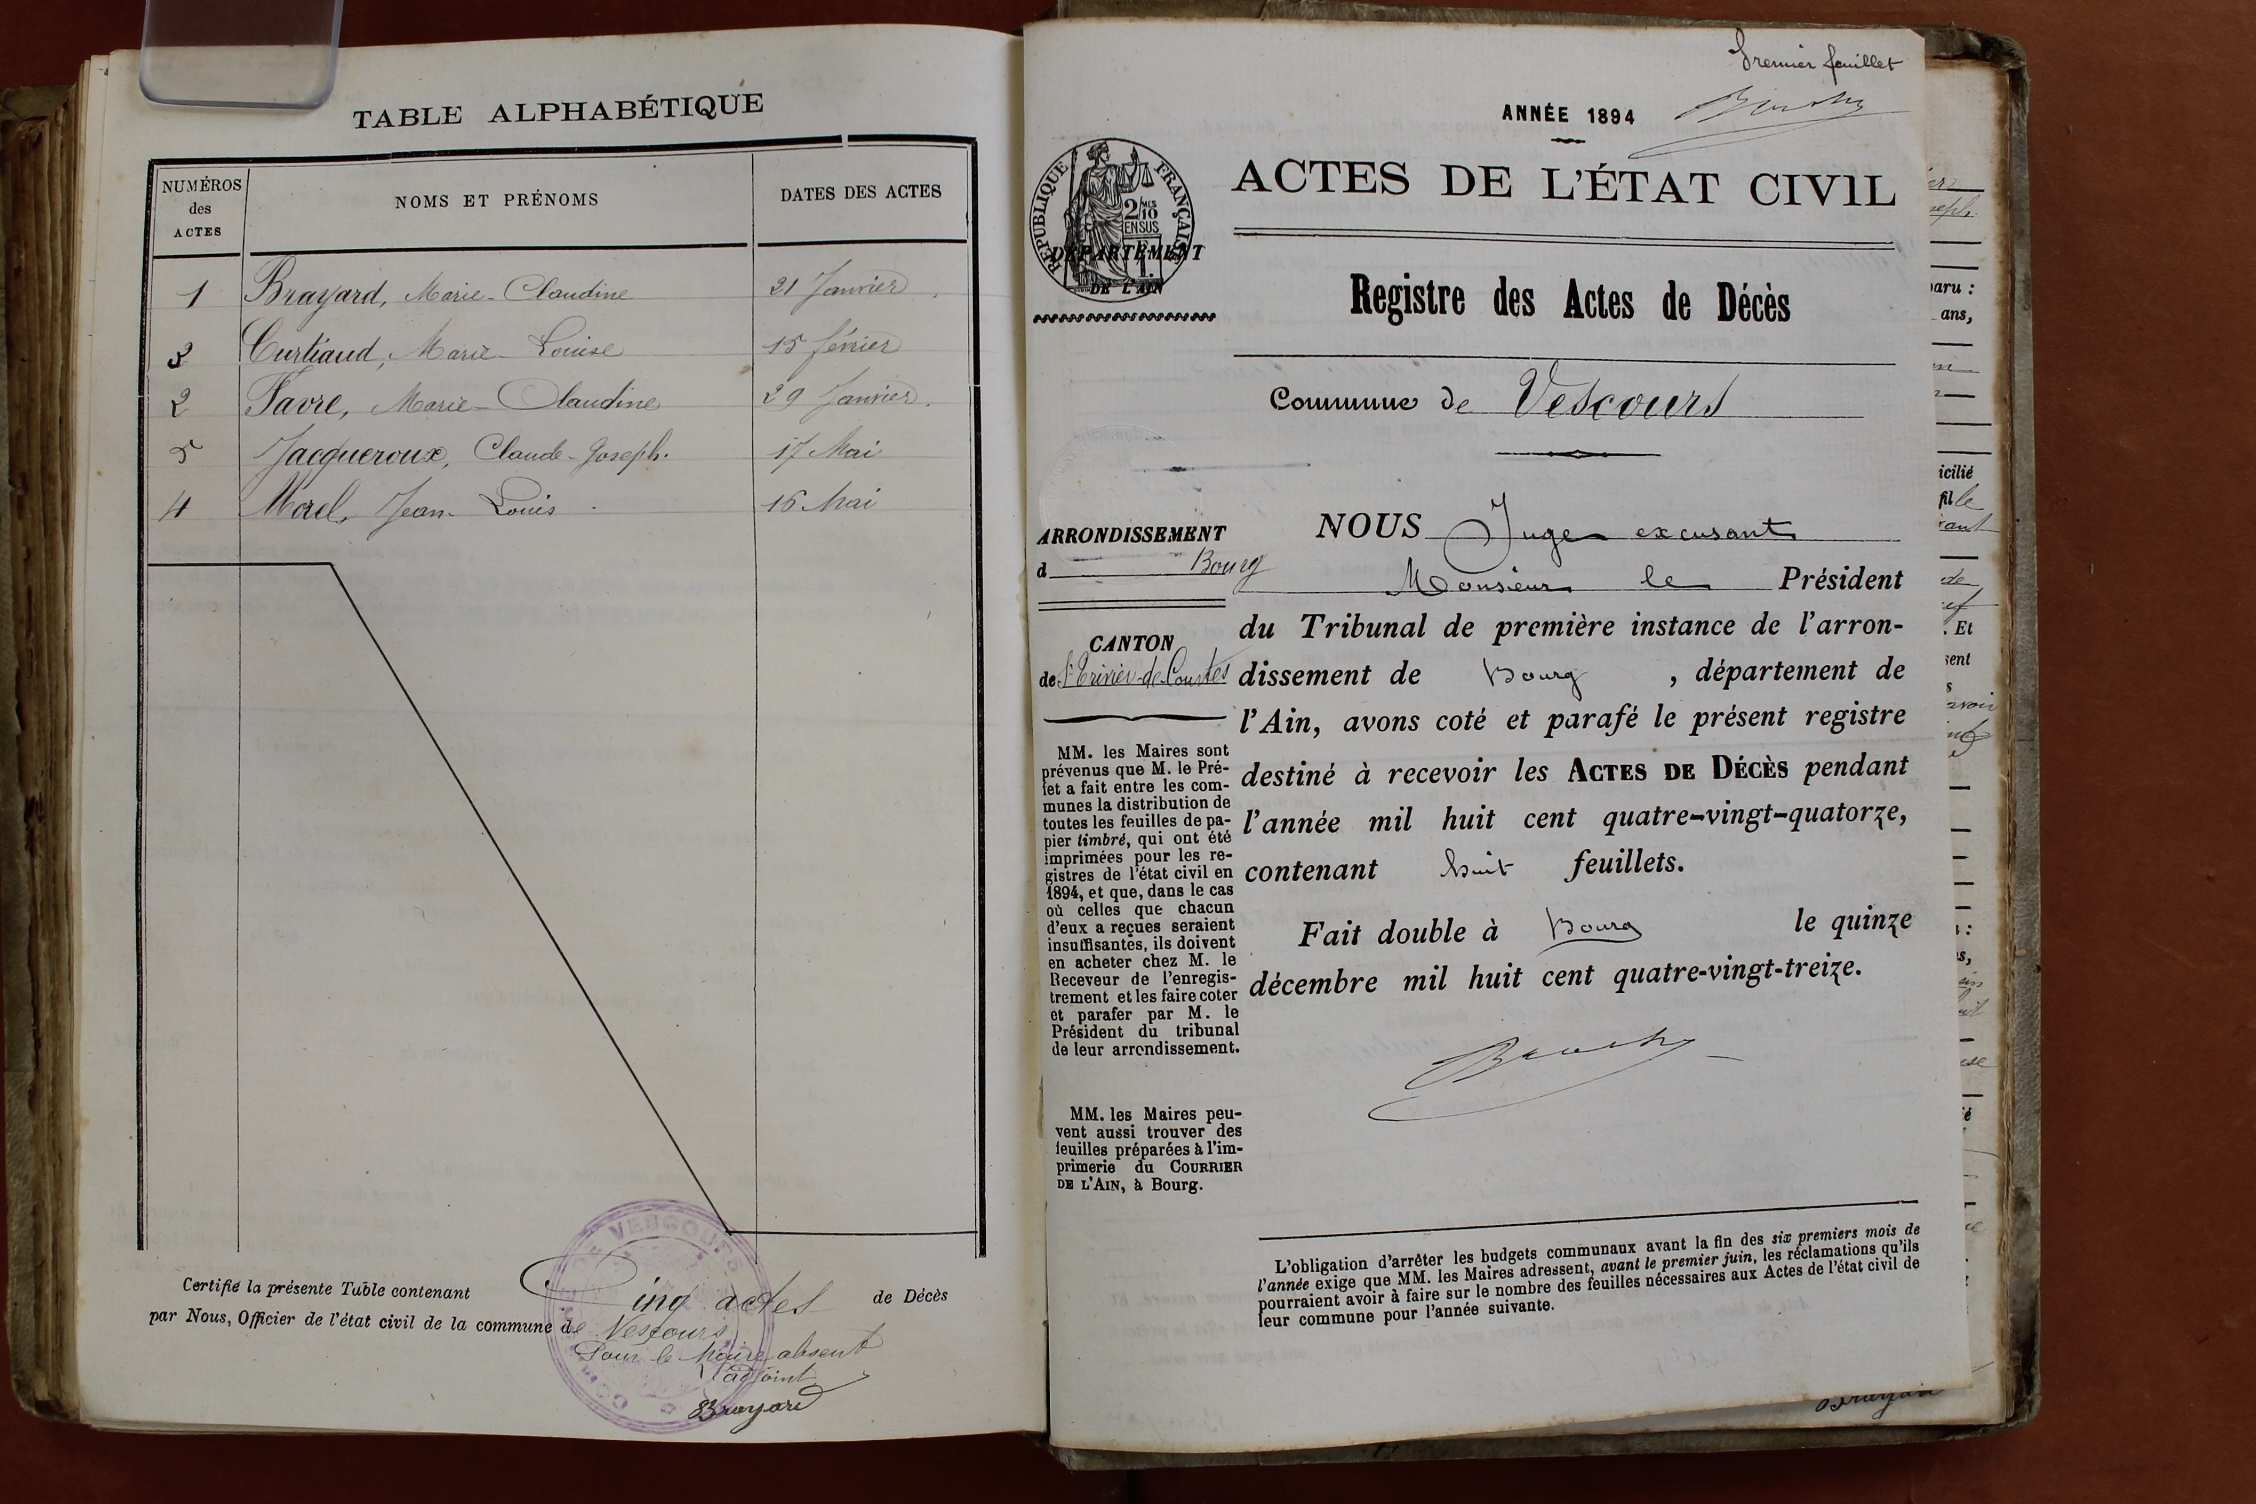 TABLE ALPHABÉTIQUE
NUMÉROS
des
ACTES
NOMS ET PRÉNOMS
DATES DES ACTES
1 Brayard, Marie-Claudine 21 Janvier
3 Curtiaud, Marie-Louise 15 février
2 Favre, Marie-Claudine 29 Janvier.
5 Jacqueroux, Claude-Joseph. 17 Mai
4 Morel, Jean-Louis 16 Mai
Certifié la présente Table contenant Cinq actes de Décès
par Nous, Officier de l'état civil de la commune de Vescours
Pour le Maire absent
l'adjoint
Brayard
Premier feuillet
ANNÉE 1894
ACTES DE L'ÉTAT CIVIL
RÉPUBLIQUE FRANÇAISE
2/10
EN SUS
DÉPARTEMENT
DE L'AIN
Registre des Actes de Décès
Commune de Vescours
ARRONDISSEMENT
d Bourg
CANTON
de St Trivier-de-Courtes
MM. les Maires sont
prévenus que M. le Pré-
fet a fait entre les com-
munes la distribution de
toutes les feuilles de pa-
pier timbré, qui ont été
imprimées pour les re-
gistres de l'état civil en
1894, et que, dans le cas
où celles que chacun
d'eux a reçues seraient
insuffisantes, ils doivent
en acheter chez M. le
Receveur de l'enregis-
trement et les faire coter
et parafer par M. le
Président du tribunal
de leur arrondissement.
MM. les Maires peu-
vent aussi trouver des
feuilles préparées à l'im-
primerie du COURRIER
DE L'AIN, à Bourg.
NOUS Juge excusant
Monsieur le Président
du Tribunal de première instance de l'arron-
dissement de Bourg, département de
l'Ain, avons coté et parafé le présent registre
destiné à recevoir les ACTES DE DÉCÈS pendant
l'année mil huit cent quatre-vingt-quatorze,
contenant huit feuillets.
Fait double à Bourg le quinze
décembre mil huit cent quatre-vingt-treize.
L'obligation d'arrêter les budgets communaux avant la fin des six premiers mois de
l'année exige que MM. les Maires adressent, avant le premier juin, les réclamations qu'ils
pourraient avoir à faire sur le nombre des feuilles nécessaires aux Actes de l'état civil de
leur commune pour l'année suivante.